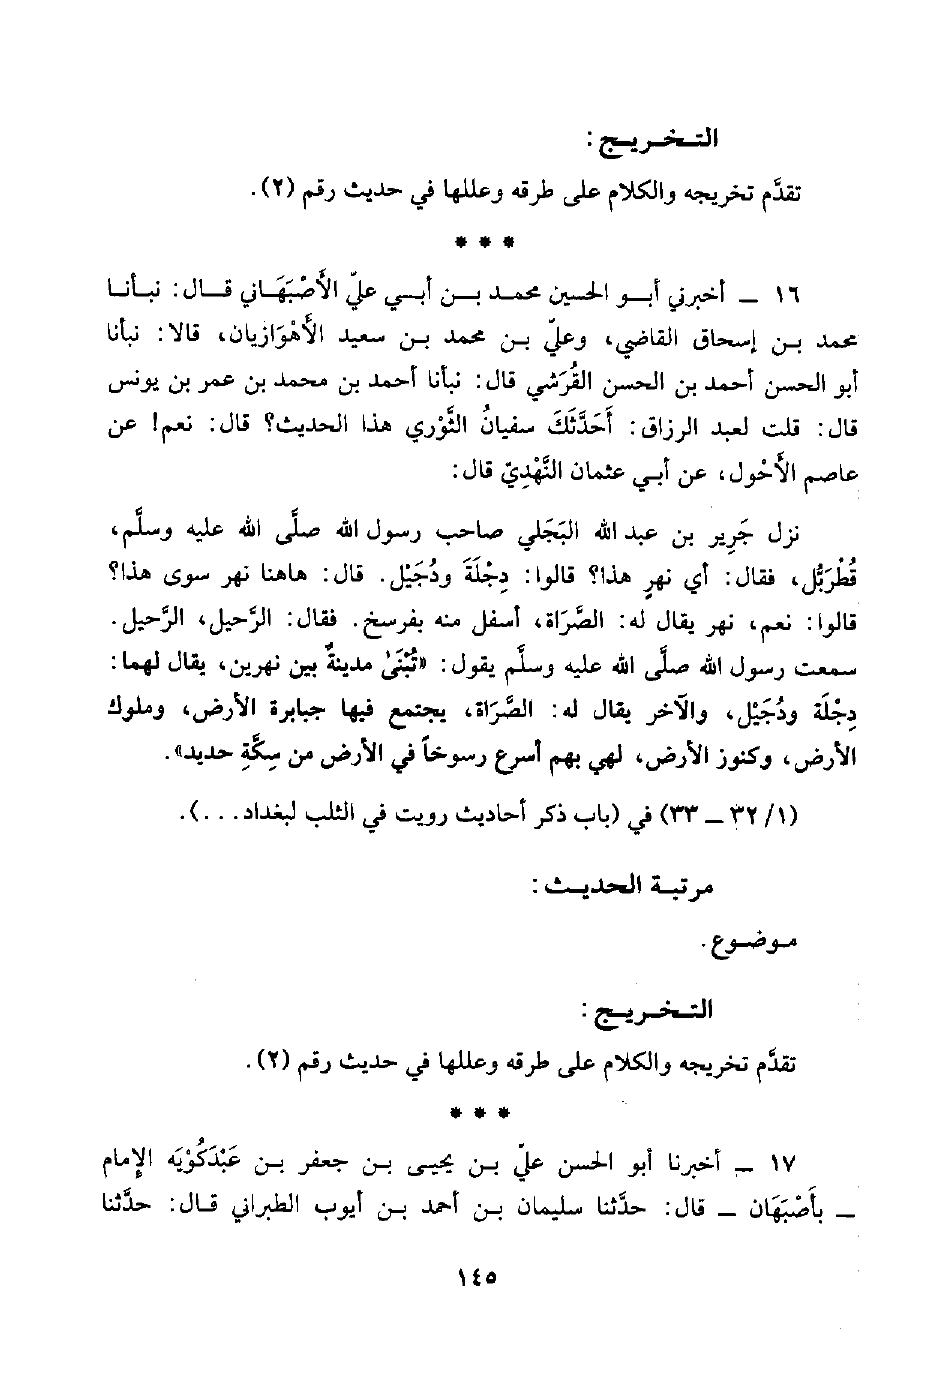 التخريج :
تقدَّم تخريجه والكلام على طرقه وعللها في حديث رقم (٢).
* * *
١٦ ـ أخبرني أبو الحسين محمد بن أبي عليّ الأَصْبَهَاني قال: نبأنا
محمد بن إسحاق القاضي، وعليّ بن محمد بن سعيد الأَهْوَازيان، قالا: نبأنا
أبو الحسن أحمد بن الحسن القُرَشي قال: نبأنا أحمد بن محمد بن عمر بن يونس
قال: قلت لعبد الرزاق: أَحَدَّثَكَ سفيانُ الثَّوْري هذا الحديث؟ قال: نعم! عن
عاصم الأَحْول، عن أبي عثمان النَّهْدِيّ قال:
نزل جَرِير بن عبد الله البَجَلي صاحب رسول الله صلَّى الله عليه وسلَّم،
قُطْرَبُّل، فقال: أي نهرٍ هذا؟ قالوا: دِجْلَةَ ودُجَيْل. قال: هاهنا نهر سوى هذا؟
قالوا: نعم، نهر يقال له: الصَّرَاة، أسفل منه بفرسخ. فقال: الرَّحيل، الرَّحيل.
سمعت رسول الله صلَّى الله عليه وسلَّم يقول: «تُبْنَىٰ مدينةٌ بين نهرين، يقال لهما:
دِجْلَة ودُجَيْل، والآخر يقال له: الصَّرَاة، يجتمع فيها جبابرة الأرض، وملوك
الأرض، وكنوز الأرض، لهي بهم أسرع رسوخاً في الأرض من سِكَّةِ حديد».
(١/ ٣٢ ـ ٣٣) في (باب ذكر أحاديث رويت في الثلب لبغداد...).
مرتبة الحديث :
موضوع.
التخريج :
تقدَّم تخريجه والكلام على طرقه وعللها في حديث رقم (٢).
* * *
١٧ ـ أخبرنا أبو الحسن عليّ بن يحيى بن جعفر بن عَبْدَكُوْيَه الإمام
ـ بأَصْبَهَان ـ قال: حدَّثنا سليمان بن أحمد بن أيوب الطبراني قال: حدَّثنا
١٤٥